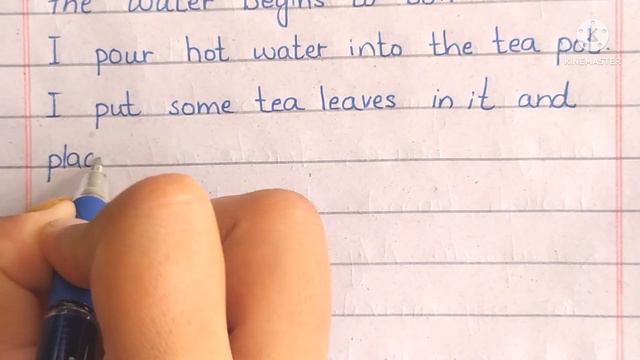 the water begins to
I pour hot water into the tea pot.
I put some tea leaves in it and
plac
KINEMASTER